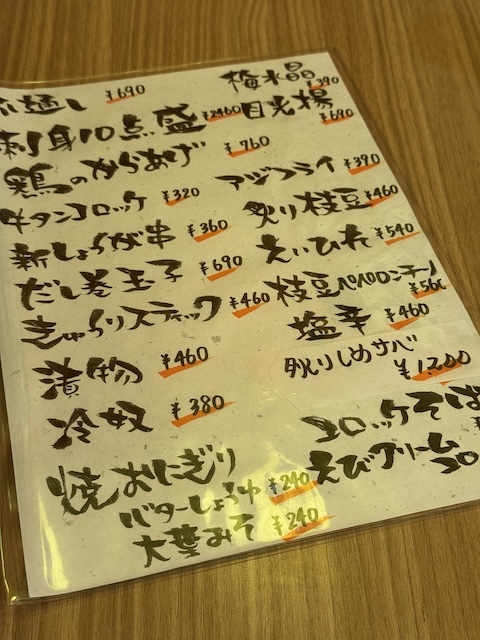 通し ¥690
刺身10点盛 ¥2460
鶏のからあげ ¥760
牛タンコロッケ ¥320
新しょうが串 ¥360
だし巻玉子 ¥690
きゅうりスティック ¥460
漬物 ¥460
冷奴 ¥380
焼おにぎり
バターしょうゆ ¥240
大葉みそ ¥240
梅水晶 ¥390
目光揚 ¥690
アジフライ ¥390
炙り枝豆 ¥460
えいひれ ¥540
枝豆ペペロンチーノ
¥560
塩辛 ¥460
炙りしめサバ
¥1,200
コロッケそば
えびクリームコロ